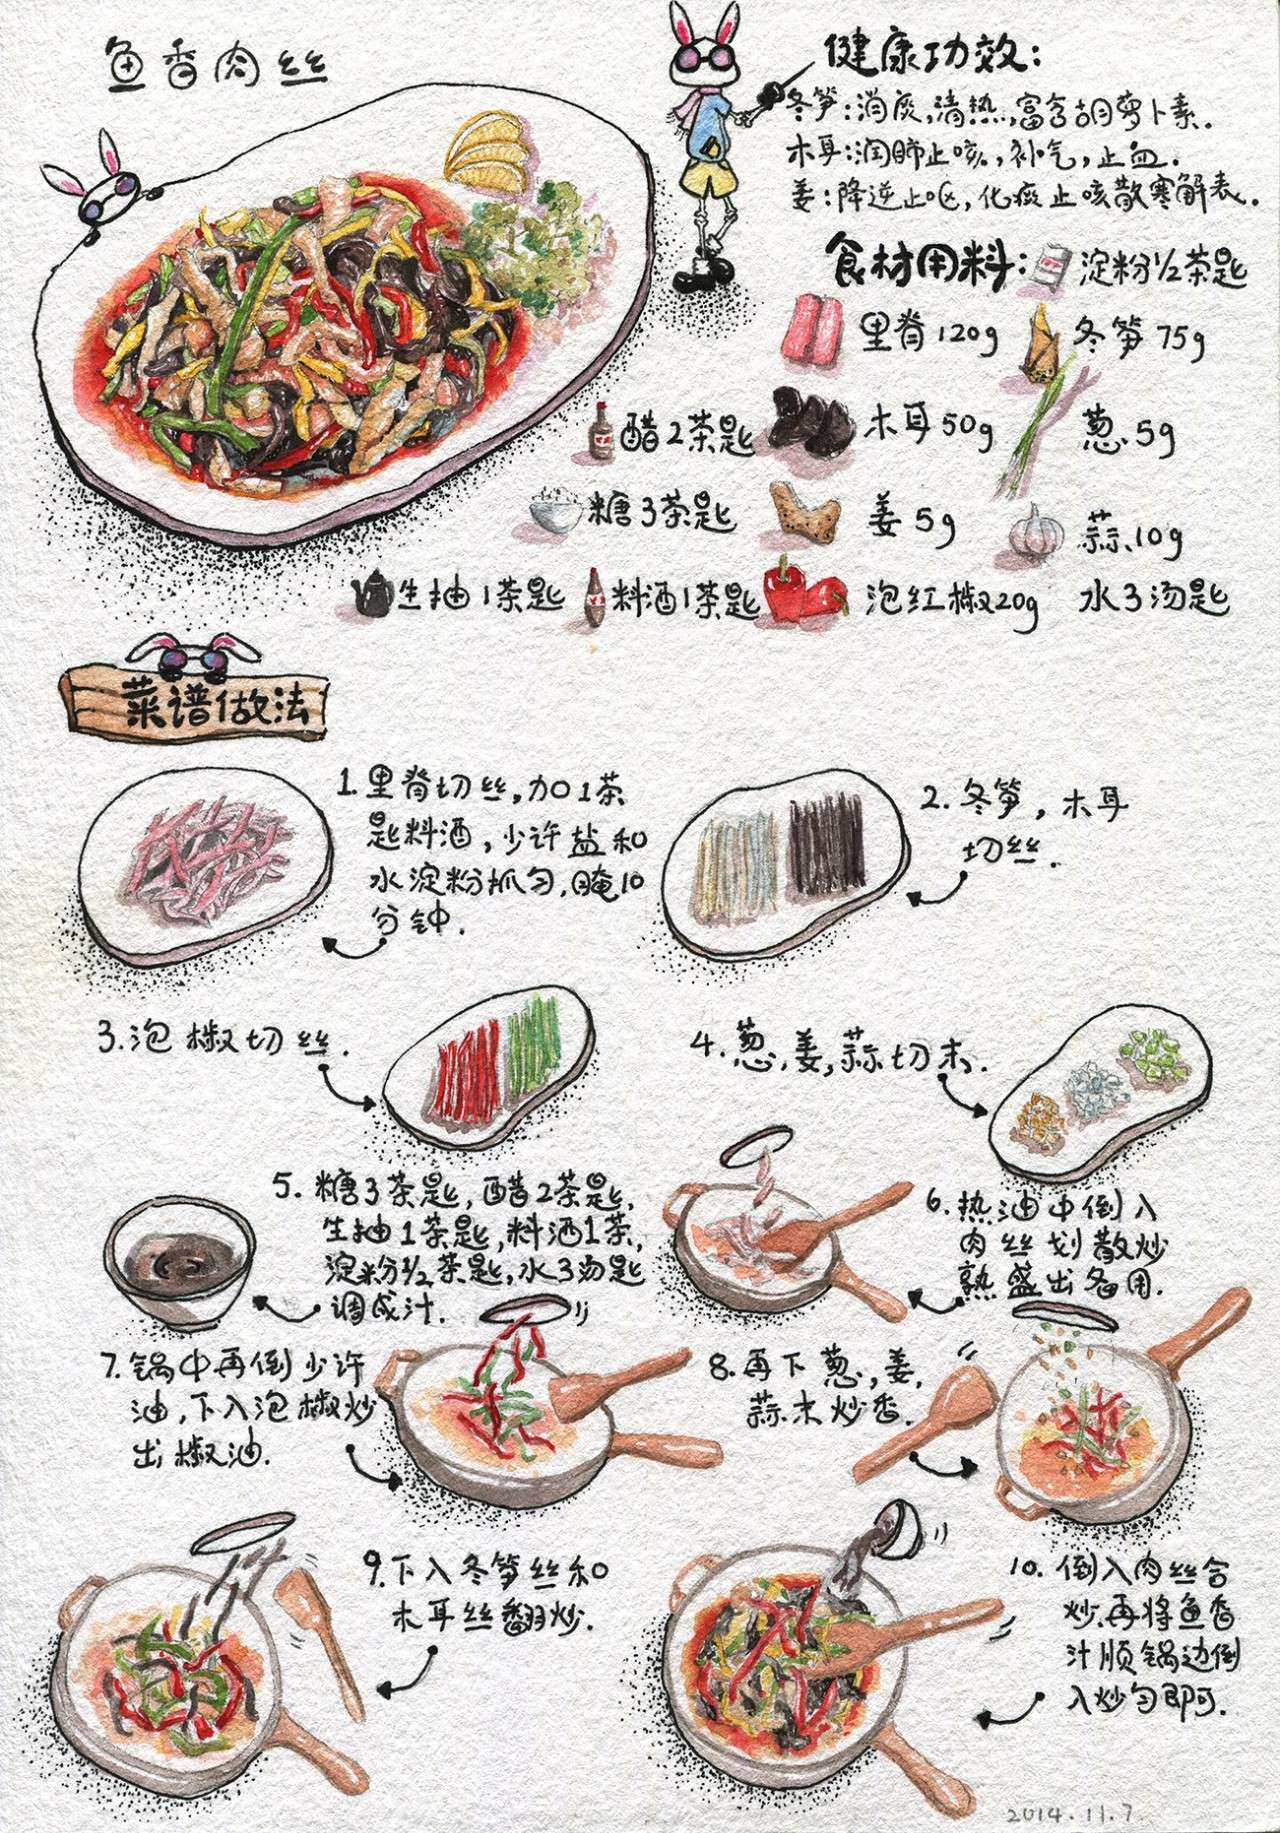 鱼香肉丝
健康功效:
冬笋:消炎,清热,富含胡萝卜素.
木耳:润肺止咳,补气,止血.
姜:降逆止呕,化痰止咳散寒解表.
食材用料:
淀粉1/2茶匙
里脊120g
冬笋75g
醋2茶匙
木耳50g
葱5g
糖3茶匙
姜5g
蒜10g
生抽1茶匙
料酒1茶匙
泡红椒20g
水3汤匙
菜谱做法
1.里脊切丝,加1茶
匙料酒,少许盐和
水淀粉抓匀,腌10
分钟.
2.冬笋,木耳
切丝.
3.泡椒切丝.
4.葱,姜,蒜切末.
5.糖3茶匙,醋2茶匙,
生抽1茶匙,料酒1茶,
淀粉1/2茶匙,水3汤匙
调成汁.
6.热油中倒入
肉丝划散炒
熟盛出备用.
7.锅中再倒少许
油,下入泡椒炒
出椒油.
8.再下葱,姜,
蒜末炒香.
9.下入冬笋丝和
木耳丝翻炒.
10.倒入肉丝合
炒.再将鱼香
汁顺锅边倒
入炒匀即可.
2014.11.7.